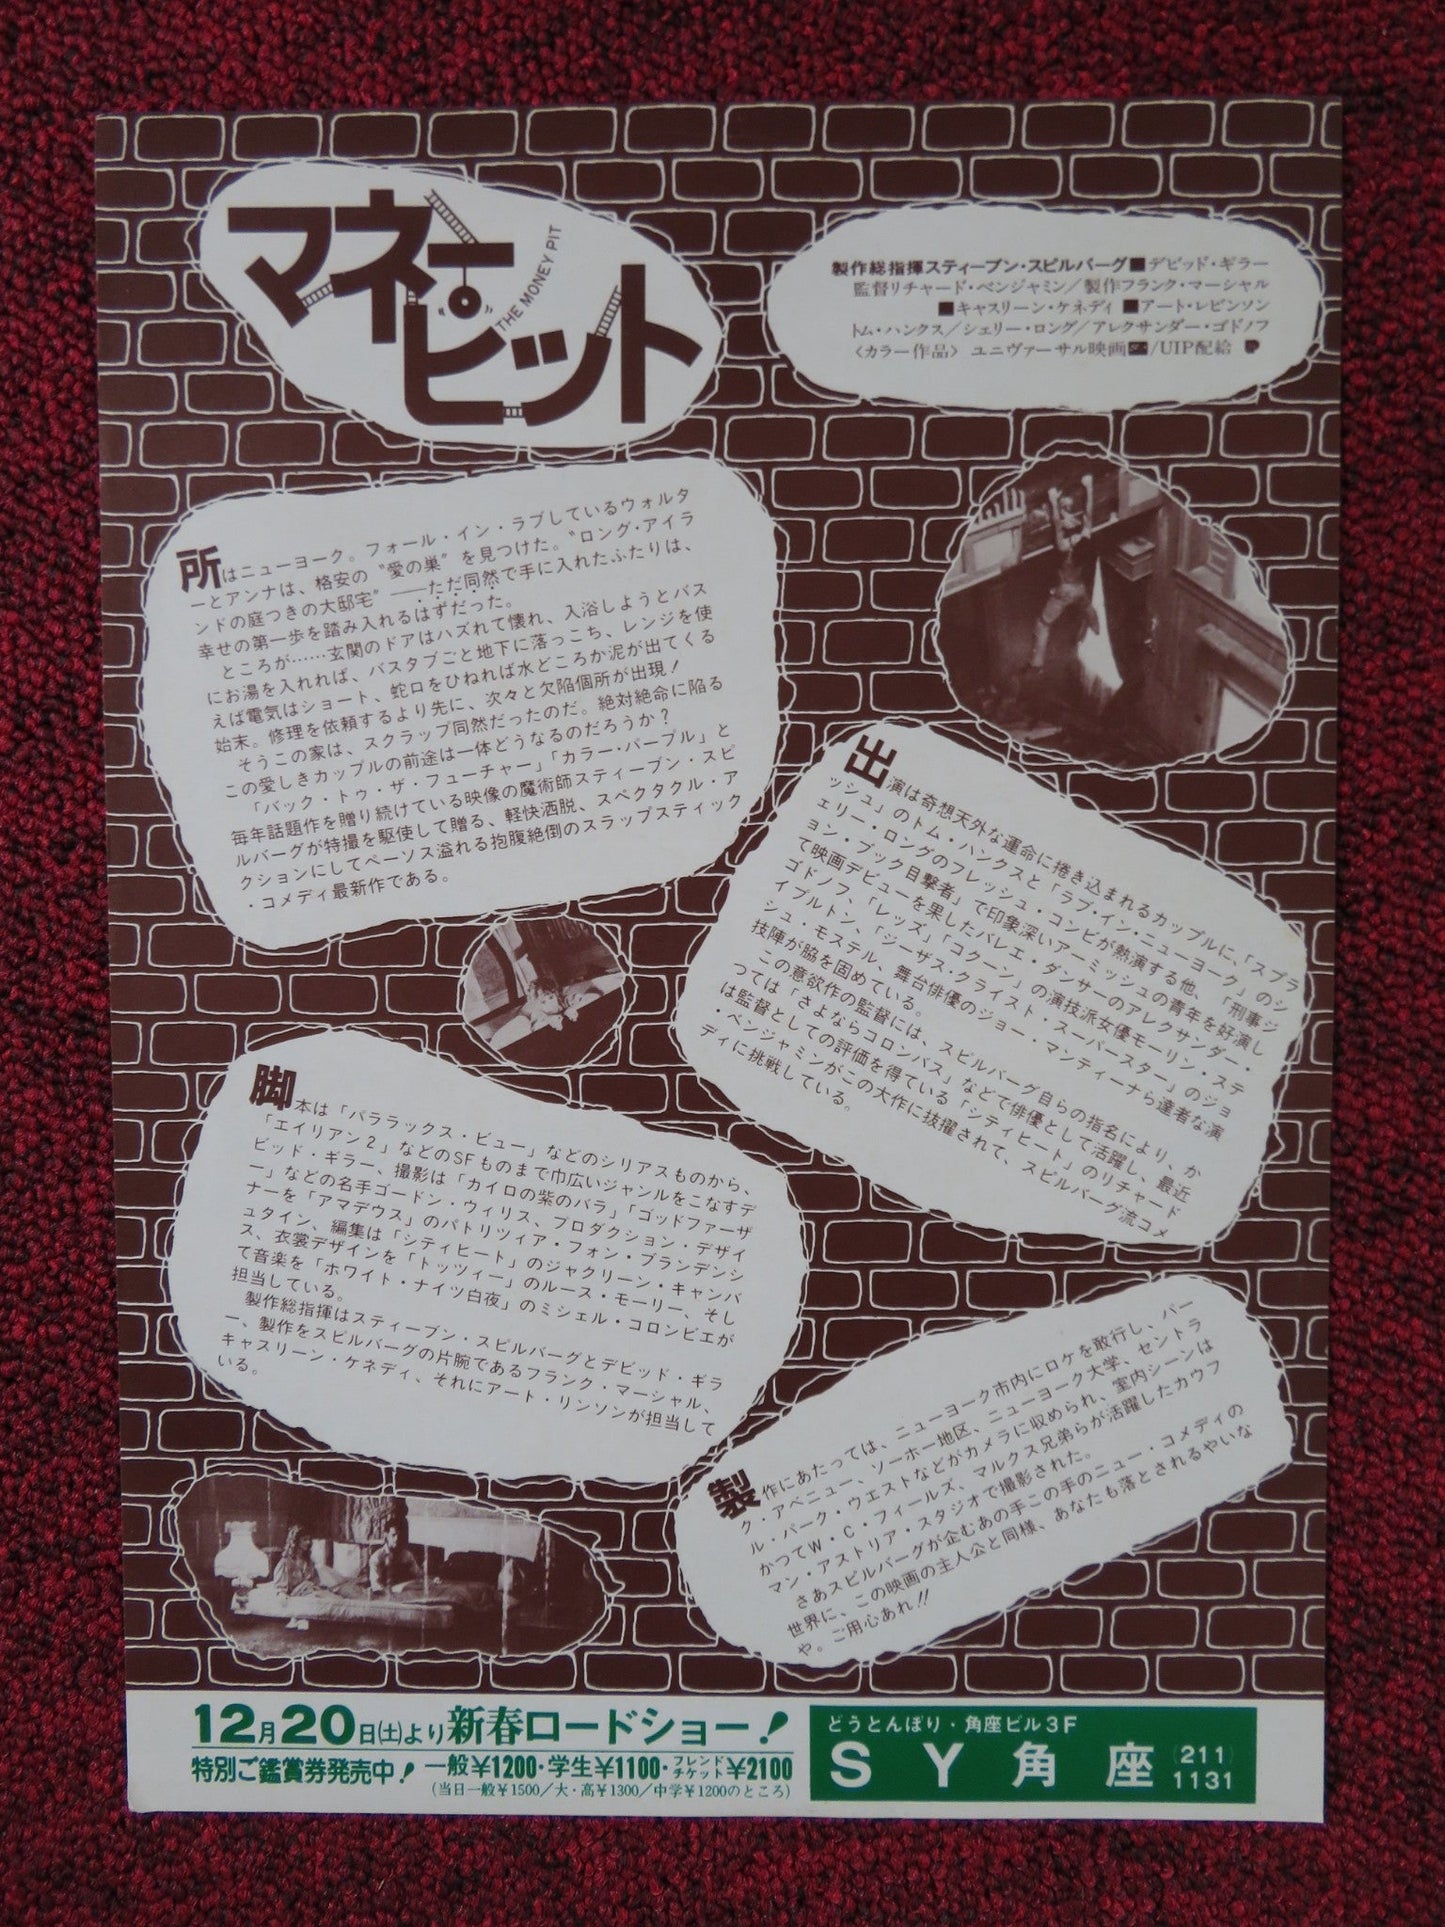 マネー・ピット
THE MONEY PIT
製作総指揮スティーブン・スピルバーグ■デビッド・ギラー
監督リチャード・ベンジャミン/製作フランク・マーシャル
■キャスリーン・ケネディ ■アート・レビンソン
トム・ハンクス/シェリー・ロング/アレクサンダー・ゴドノフ
〈カラー作品〉 ユニヴァーサル映画/UIP配給
所はニューヨーク。フォール・イン・ラブしているウォルタ
ーとアンナは、格安の〝愛の巣〟を見つけた。〝ロング・アイラ
ンドの庭つきの大邸宅〟——ただ同然で手に入れたふたりは、
幸せの第一歩を踏み入れるはずだった。
ところが……玄関のドアはハズれて懐れ、入浴しようとバス
にお湯を入れれば、バスタブごと地下に落っこち、レンジを使
えば電気はショート、蛇口をひねれば水どころか泥が出てくる
始末。修理を依頼するより先に、次々と欠陥個所が出現！
そうこの家は、スクラップ同然だったのだ。絶対絶命に陥る
この愛しきカップルの前途は一体どうなるのだろうか？
「バック・トゥ・ザ・フューチャー」「カラー・パープル」と
毎年話題作を贈り続けている映像の魔術師スティーブン・スピ
ルバーグが特撮を駆使して贈る、軽快洒脱、スペクタクル・ア
クションにしてペーソス溢れる抱腹絶倒のスラップスティック
・コメディ最新作である。
出演は奇想天外な運命に捲き込まれるカップルに、「スプラ
ッシュ」のトム・ハンクスと「ラブ・イン・ニューヨーク」のシ
ェリー・ロングのフレッシュ・コンビが熱演する他、「刑事ジ
ョン・ブック目撃者」で印象深いアーミッシュの青年を好演し
て映画デビューを果したバレエ・ダンサーのアレクサンダー・
ゴドノフ、「レッズ」「コクーン」の演技派女優モーリン・ステ
イプルトン、「ジーザス・クライスト・スーパースター」のジョ
シュ・モステル、舞台俳優のジョー・マンティーナら達者な演
技陣が脇を固めている。
この意欲作の監督には、スピルバーグ自らの指名により、か
つては「さよならコロンバス」などで俳優として活躍し、最近
は監督としての評価を得ている「シティヒート」のリチャード
・ベンジャミンがこの大作に抜擢されて、スピルバーグ流コメ
ディに挑戦している。
脚本は「パララックス・ビュー」などのシリアスものから、
「エイリアン2」などのSFものまで巾広いジャンルをこなすデ
ビッド・ギラー、撮影は「カイロの紫のバラ」「ゴッドファーザ
ー」などの名手ゴードン・ウィリス、プロダクション・デザイ
ナーを「アマデウス」のパトリツィア・フォン・ブランデンシ
ュタイン、編集は「シティヒート」のジャクリーン・キャンバ
ス、衣裳デザインを「トッツィー」のルース・モーリー、そし
て音楽を「ホワイト・ナイツ白夜」のミシェル・コロンビエが
担当している。
製作総指揮はスティーブン・スピルバーグとデビッド・ギラ
ー、製作をスピルバーグの片腕であるフランク・マーシャル、
キャスリーン・ケネディ、それにアート・リンソンが担当して
いる。
製作にあたっては、ニューヨーク市内にロケを敢行し、パー
ク・アベニュー、ソーホー地区、ニューヨーク大学、セントラ
ル・パーク・ウエストなどがカメラに収められ、室内シーンは
かつてW・C・フィールズ、マルクス兄弟らが活躍したカウフ
マン・アストリア・スタジオで撮影された。
さあスピルバーグが企むあの手この手のニュー・コメディの
世界に、この映画の主人公と同様、あなたも落とされるやいな
や。ご用心あれ!!
12月20日(土)より新春ロードショー！
特別ご鑑賞券発売中！ 一般¥1200・学生¥1100・フレンドチケット¥2100
(当日一般¥1500/大・高¥1300/中学¥1200のところ)
どうとんぼり・角座ビル3F
SY角座 (211)1131